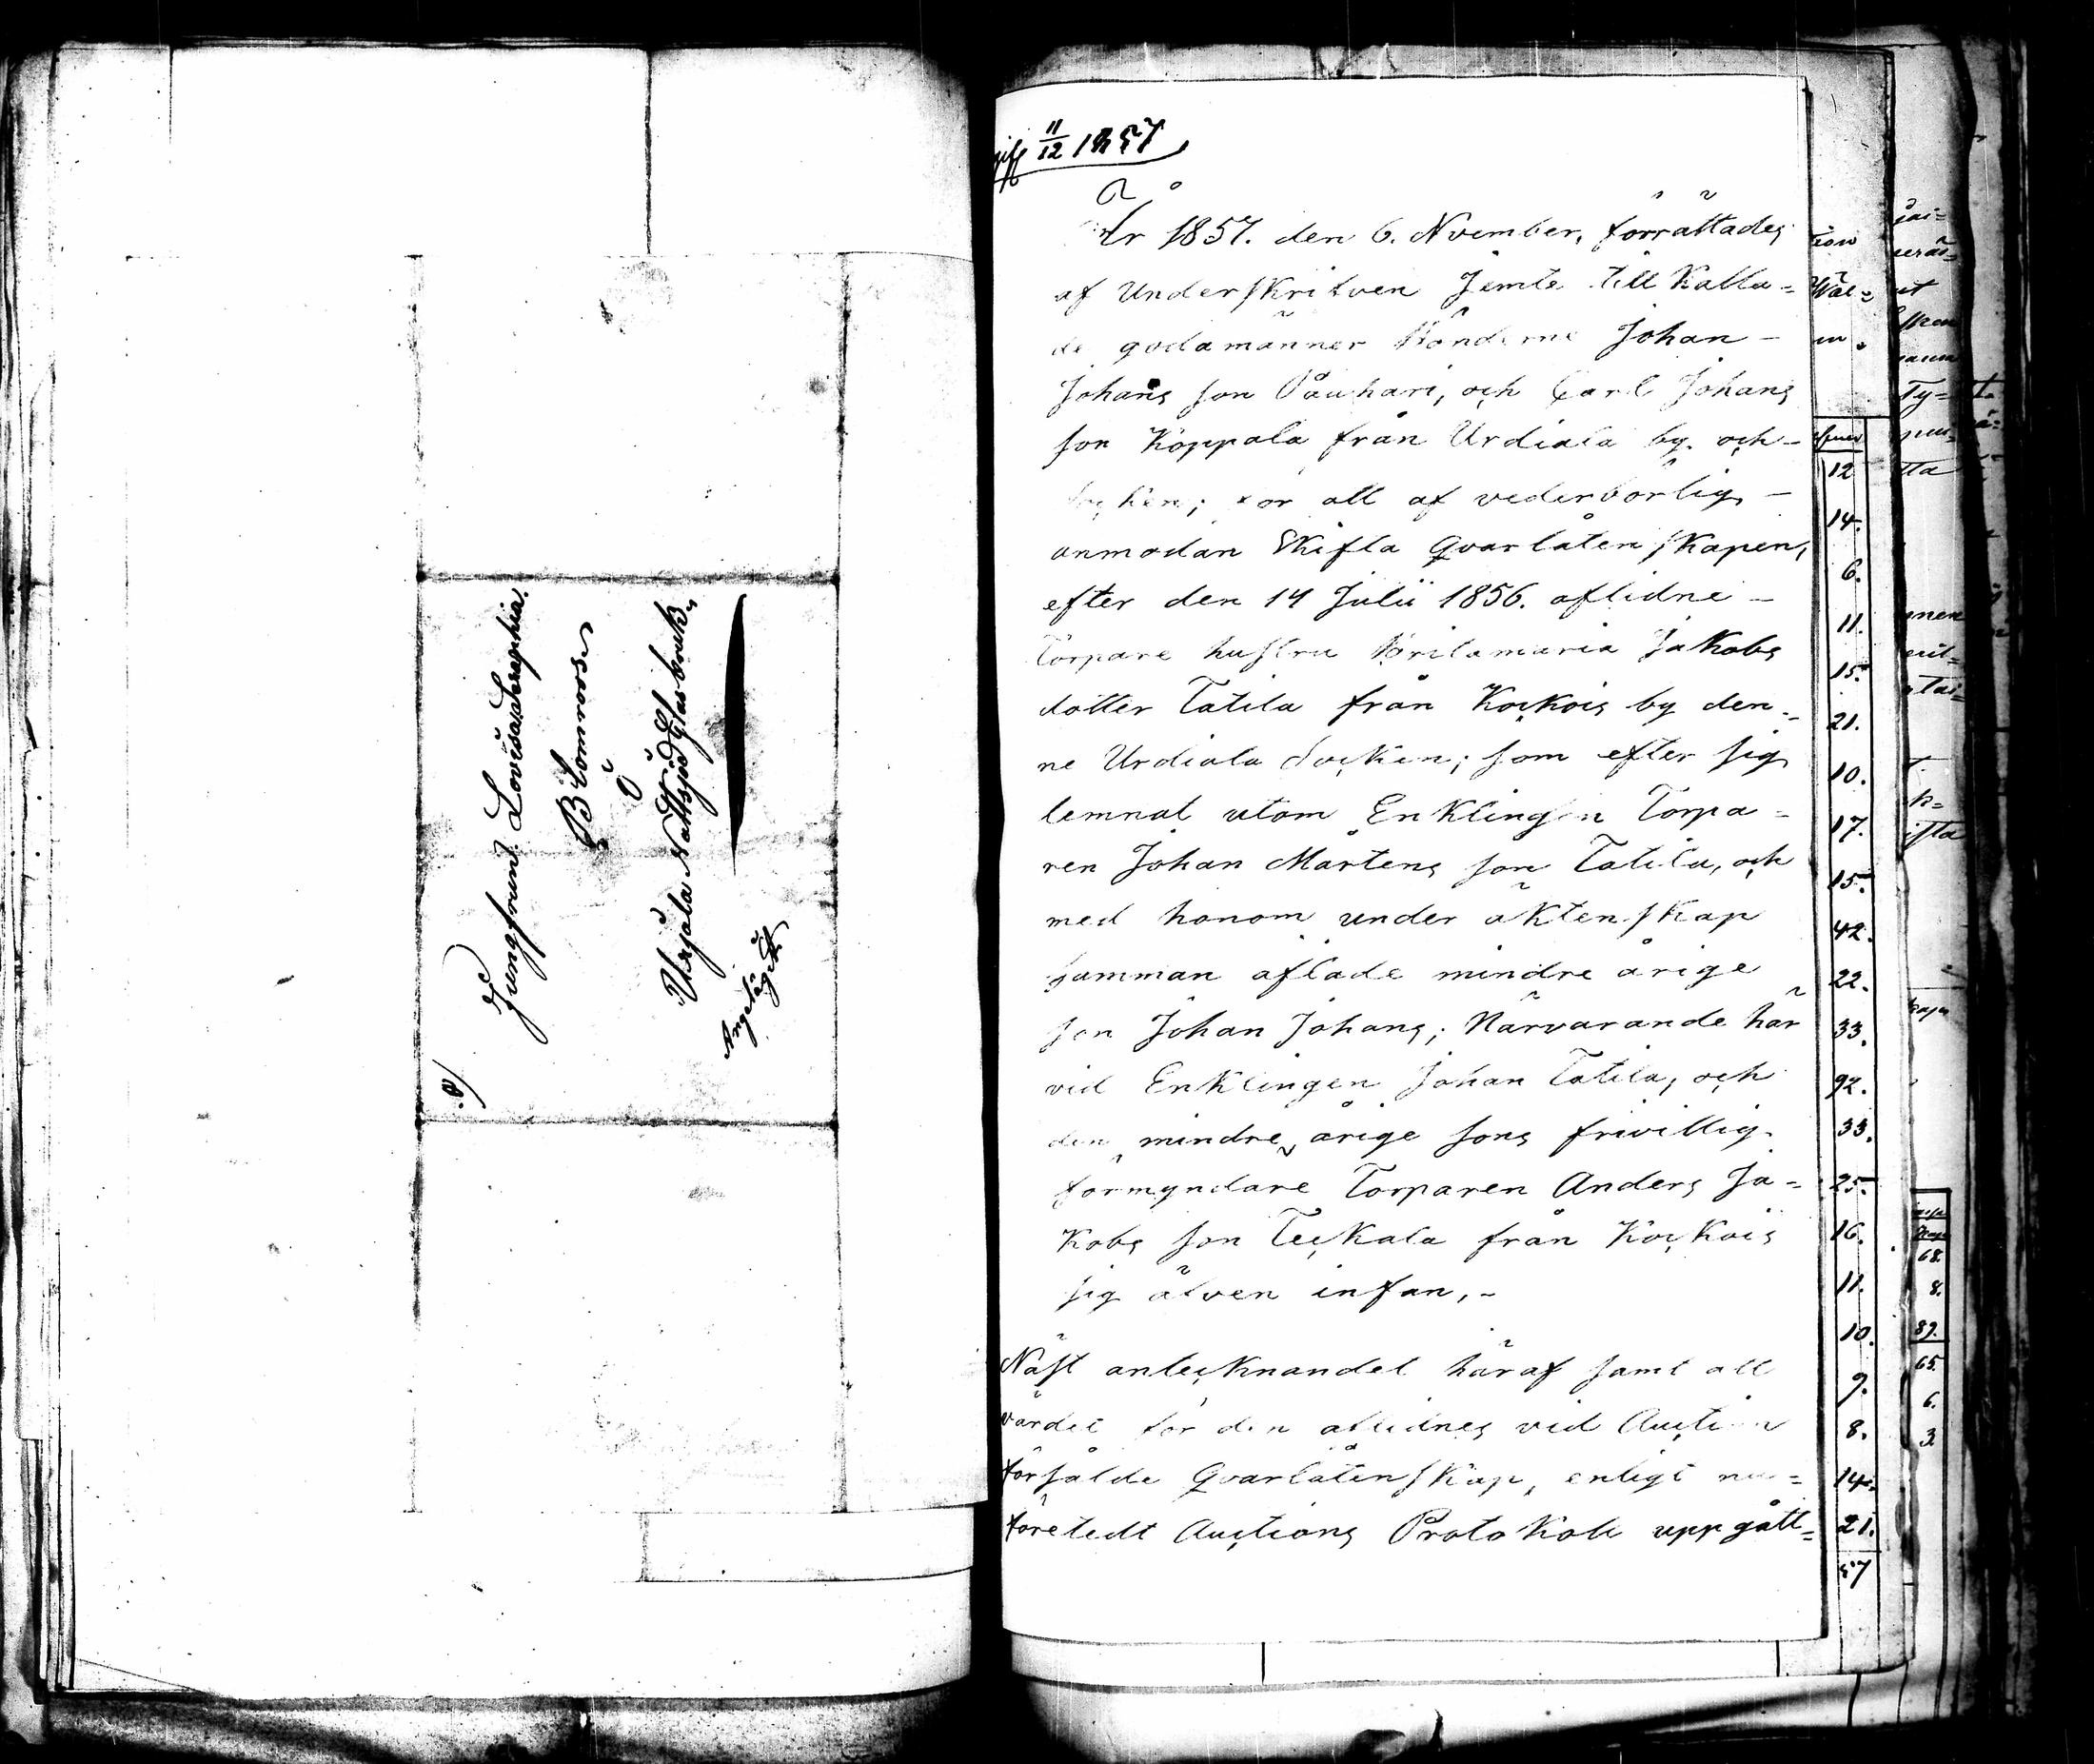 Jungfrun Lovisa Seraphia
Blomroos
Å
Urjala Nuttsjö Glasbruk
Angeläget
a)
11/12 1857
År 1857. den 6. Nvember, förrättades
af Underskritven Jemte till Kalla=
de godamänner Bönderne Johan -
Johans son Pauhari, och Carl Johans
son Koppala från Urdiala by. och -
Socken; för att af vederbörlig -
anmodan Skifta Qvarlåtenskapen,
efter den 14 Julii 1856. aflidne -
Torpare hustru Britamaria Jakobs
dotter Tatila från Kockois by den=
ne Urdiala Socken; som efter sig
lemnat utom Enklingen Torpa=
ren Johan Mårtens son Tatila, och
med honom under äktenskap
samman aflade mindre årige
son Johan Johans; Närvarande här
vid Enklingen Johan Tatila, och
den mindre årige sons frivillig
förmyndare Torparen Anders Ja=
kobs son Teckala från Kockois
sig äfven infan,-
Näst antecknandet häraf samt att
värdet för den aflidnes vid Auction
försålde Qvarlåtenskap, enligt nu=
företedt Auctions Protokoll uppgått=
12
14.
6.
11.
15.
21.
10.
17.
15.
42.
22.
33.
92.
33.
25.
16.
11.
10.
9.
8.
14.
21.
57
68.
8.
89.
65.
6.
3.